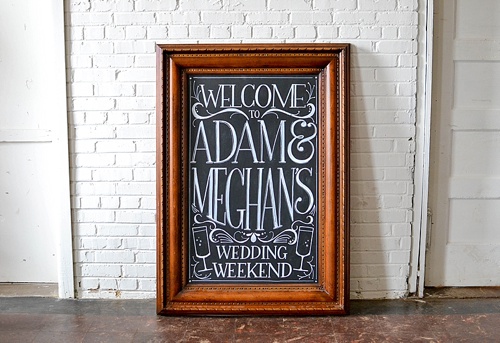 WELCOME
TO
ADAM &
MEGHAN'S
WEDDING
WEEKEND